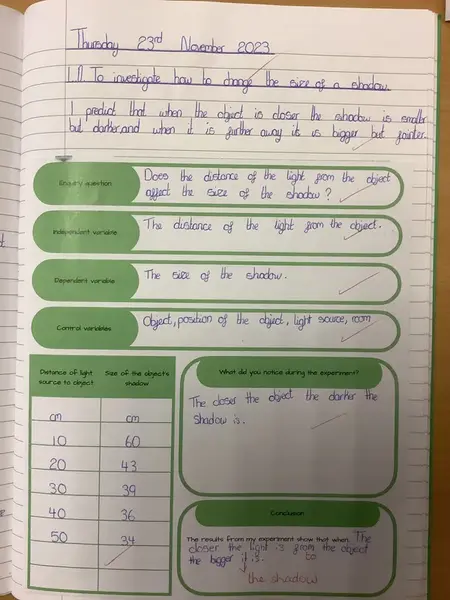 Thursday 23rd November 2023
L.I. To investigate how to change the size of a shadow.
I predict that when the object is closer the shadow is smaller
but darker, and when it is further away it is bigger but fainter.
Enquiry question
Does the distance of the light from the object
affect the size of the shadow?
Independent variable
The distance of the light from the object.
Dependent variable
The size of the shadow.
Control variables
Object, position of the object, light source, room
Distance of light source to object
Size of the object's shadow
cm cm
10 60
20 43
30 39
40 36
50 34
What did you notice during the experiment?
The closer the object the darker the
shadow is.
Conclusion
The results from my experiment show that when: The
closer the light is from the object
to
the bigger it is.
the shadow